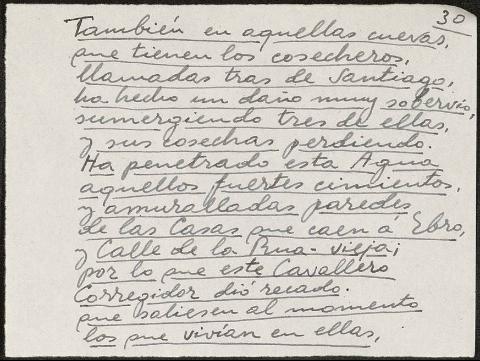 30
También en aquellas cuevas,
que tienen los cosecheros,
llamadas tras de Santiago,
ha hecho un daño muy sobervio,
sumergiendo tres de ellas,
y sus cosechas perdiendo.
Ha penetrado esta Agua
aquellos fuertes cimientos,
y amuralladas paredes
de las Casas que caen á Ebro,
y Calle de la Rua-vieja;
por lo que este Cavallero
Corregidor dió recado.
que saliesen al momento
los que vivían en ellas,